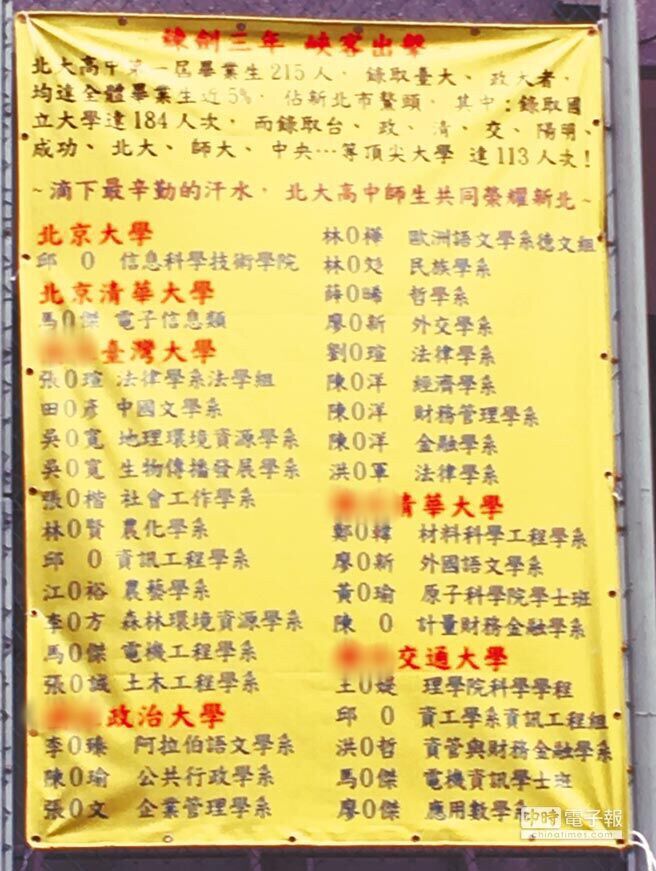 練劍三年 峽客出擊
北大高中第一屆畢業生215人，錄取臺大、政大者，
均達全體畢業生近5%，佔新北市鰲頭，其中:錄取國
立大學達184人次，而錄取台、政、清、交、陽明、
成功、北大、師大、中央…等頂尖大學 達113人次!
~滴下最辛勤的汗水，北大高中師生共同榮耀新北~
北京大學
邱 O 信息科學技術學院
北京清華大學
馬O傑 電子信息類
臺灣大學
張O瑄 法律學系法學組
田O彥 中國文學系
吳O寬 地理環境資源學系
吳O寬 生物傳播發展學系
張O楷 社會工作學系
林O賢 農化學系
邱 O 資訊工程學系
江O裕 農藝學系
李O方 森林環境資源學系
馬O傑 電機工程學系
張O誠 土木工程學系
政治大學
李O臻 阿拉伯語文學系
陳O瑜 公共行政學系
張O文 企業管理學系
林O樺 歐洲語文學系德文組
林O 民族學系
薛O晞 哲學系
廖O新 外交學系
劉O瑄 法律學系
陳O洋 經濟學系
陳O洋 財務管理學系
陳O洋 金融學系
洪O軍 法律學系
清華大學
鄭O韓 材料科學工程學系
廖O新 外國語文學系
黃O瑜 原子科學院學士班
陳 O 計量財務金融學系
交通大學
王O媞 理學院科學學程
邱 O 資工學系資訊工程組
洪O哲 資管與財務金融學系
馬O傑 電機資訊學士班
廖O傑 應用數學系
中時電子報
chinatimes.com